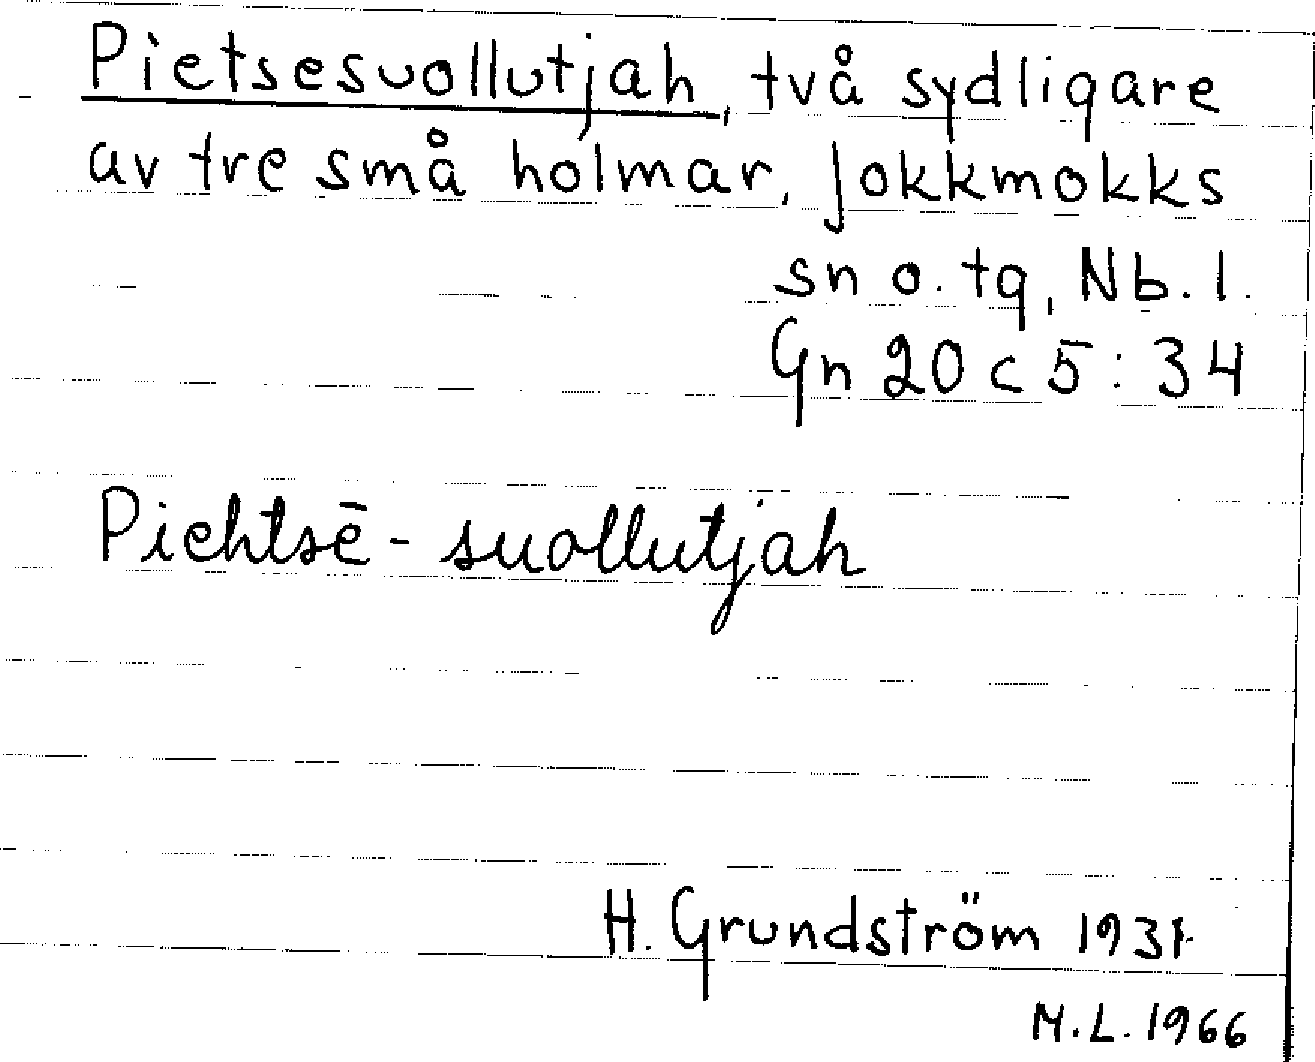 Pietsesuollutjah, två sydligare
av tre små holmar, Jokkmokks
sn o. tg, Nb. l.
Gn 20 c 5:34
Piehtsē - suollutjah
H. Grundström 1931
M.L. 1966